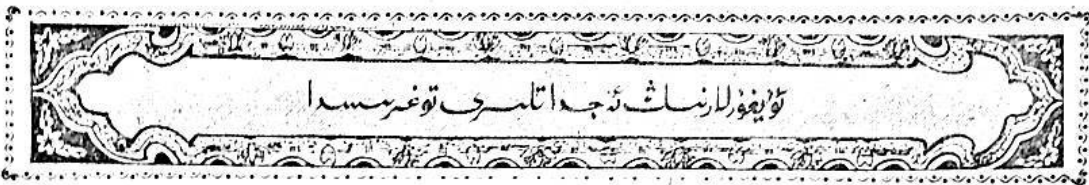 ئۇيغۇرلارنىڭ ئەجداتلىرى توغرىسىدا